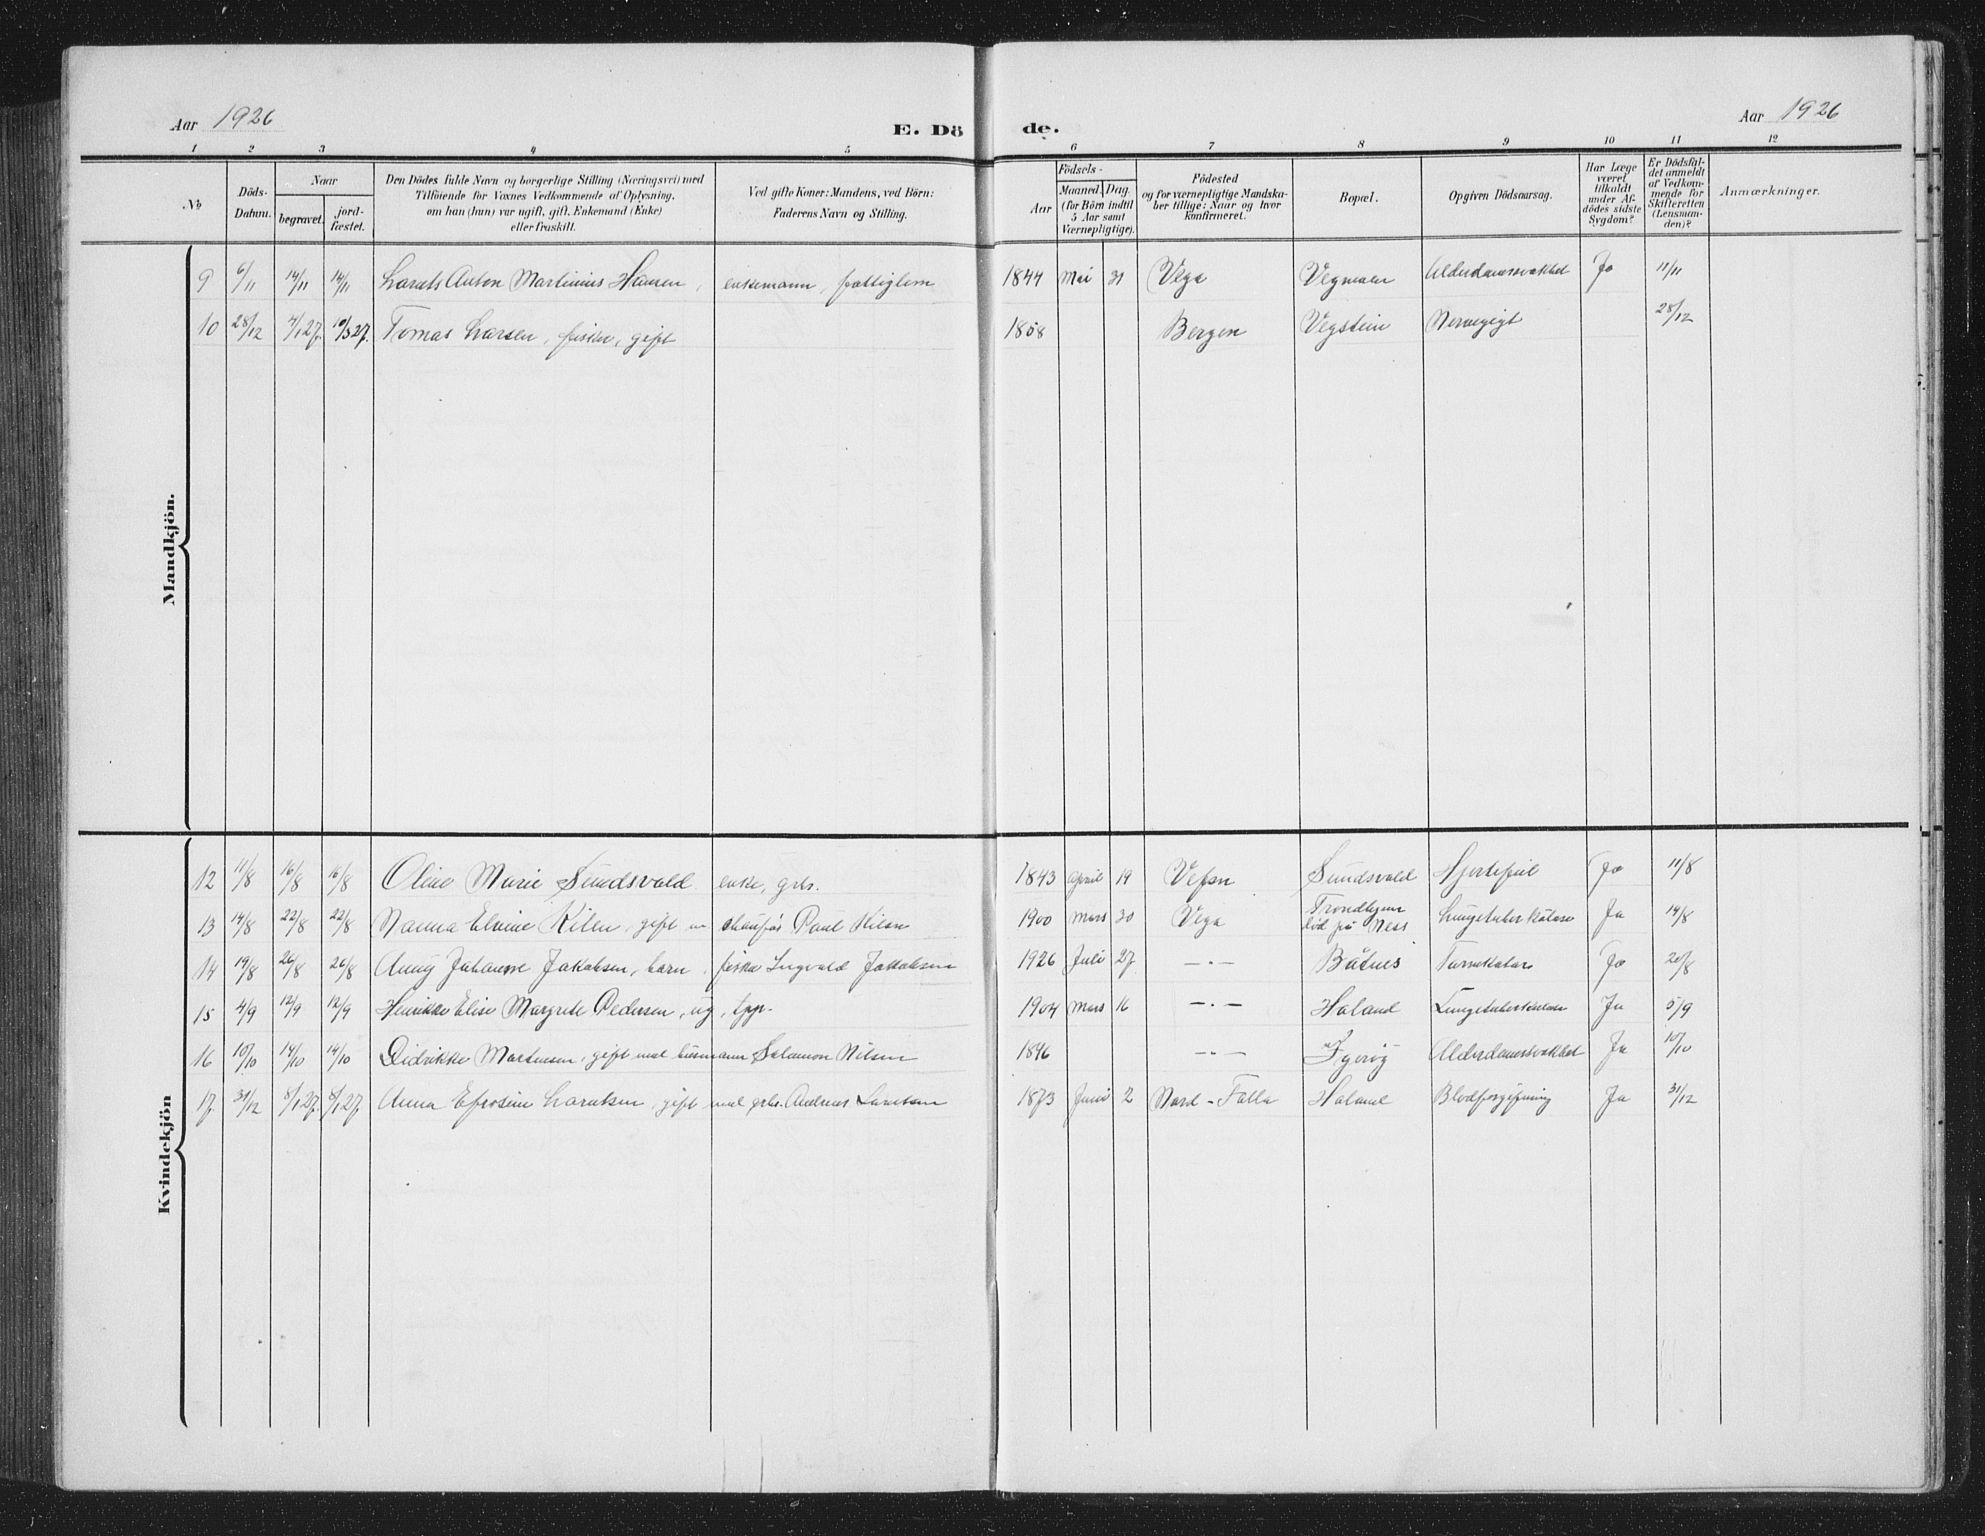 Aar 1926
E. Dö
de.
Aar 1926
1 2 3 4 5 6 7 8 9 10 11 12
No
Döds-Datum.
Naar
begravet. jord-fæstet.
Den Dödes fulde Navn og borgerlige Stilling (Næringsvei) med
Tilföiende for Voxnes Vedkommende af Oplysning,
om han (hun) var ugift, gift, Enkemand (Enke)
eller fraskilt.
Ved gifte Koner: Mandens, ved Börn:
Faderens Navn og Stilling.
Födsels-
Aar
Maaned. Dag.
(for Börn indtil
5 Aar samt
Værnepligtige).
Födested
og for værnepligtige Mandska-
ber tillige: Naar og hvor
konfirmeret.
Bopæl.
Opgiven Dödsaarsag.
Har Læge
været
tilkaldt
under Af-
dödes sidste
Sygdom?
Er Dödsfal-
det anmeldt
af Vedkom-
mende for
Skifteretten
(Lensman-
den)?
Anmærkninger.
Mandkjön.
9 6/11 14/11 14/11 Anton Martinius Hansen, enkemann, fattiglem 1844 Mai 31 Vega Vegmoen Alderdomssvakhet Ja 11/11
10 28/12 4/1 27. 10/3 27. Tomas Larsen, fisker, gift 1858 Bergen Vegstein 28/12
Kvindekjön
12 11/8 16/8 16/8 Oline Marie Sundsvold enke, grbr. 1843 april 19 Vefsn Sundsvold Hjertefeil Ja 11/8
13 14/8 22/8 22/8 Nanna Elvine Kilen, gift m chaufør Paul Kilen 1900 Mars 30 Vega Trondhjem død på Ness Lungetuberkulose Ja 14/8
14 19/8 26/8 26/8 Anny Johanne Jakobsen, barn, fisker Ingvald Jakobsen 1926 Juli 27 —.— Båtnes Ja 20/8
15 4/9 12/9 12/9 Henrikke Elise Margrete Pedersen, ug, 1904 Mars 16 —.— Haland Lungetuberkulose Ja 5/9
16 10/10 14/10 14/10 Didrikke Martensen, gift med husmann Salamon Nilsen 1846 —.— Alderdomssvakhet Ja 10/10
17. 31/12 8/1 27. 8/1 27. Anna Efrosine Larntsen, gift med grbr. Andreas Larntsen 1873 Juni 2 Nord-Folla Haland Blodforgiftning Ja 31/12